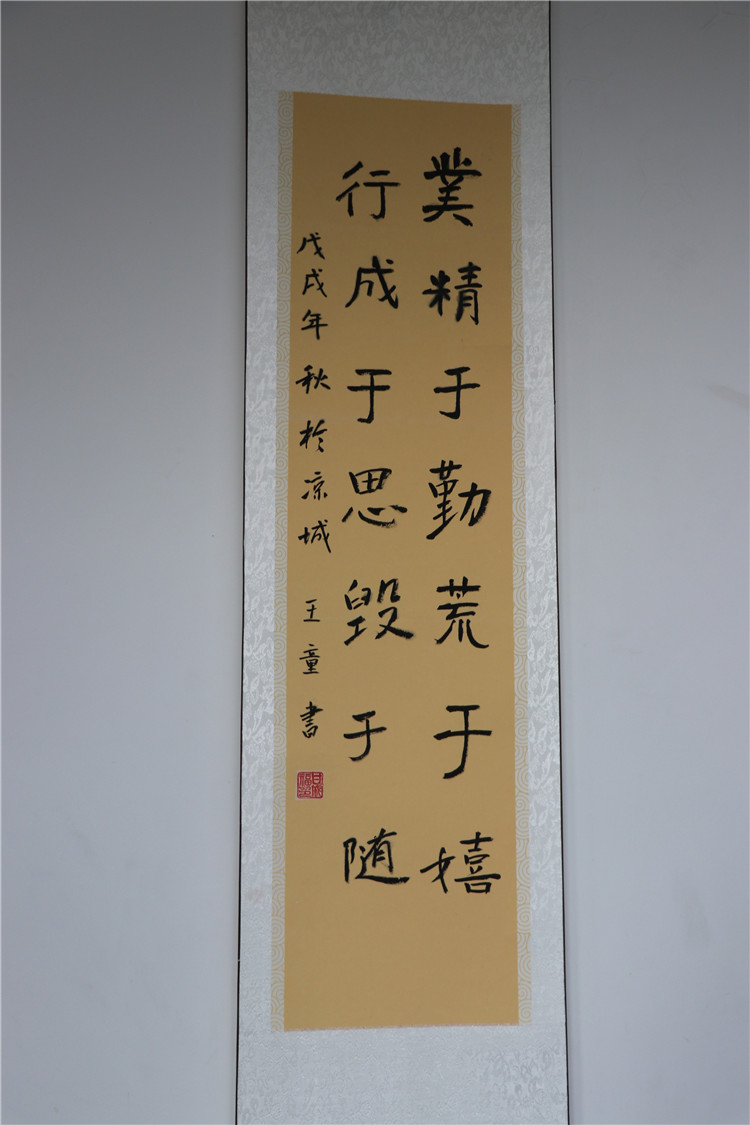 業精于勤荒于嬉
行成于思毀于随
戊戌年秋於凉城王童書